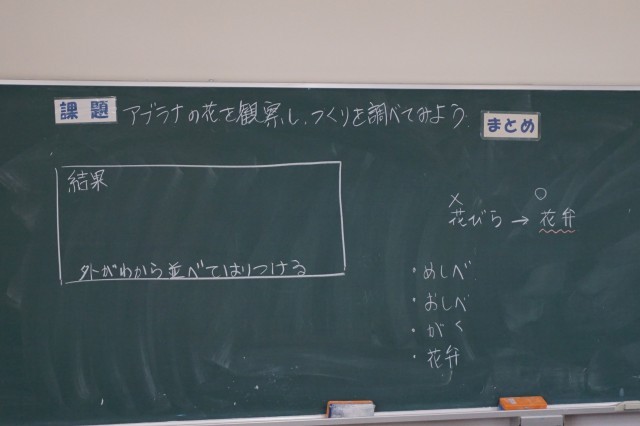 課題
アブラナの花を観察し、つくりを調べてみよう
まとめ
結果
外がわから並べてはりつける
× ○
花びら → 花弁
・めしべ
・おしべ
・がく
・花弁